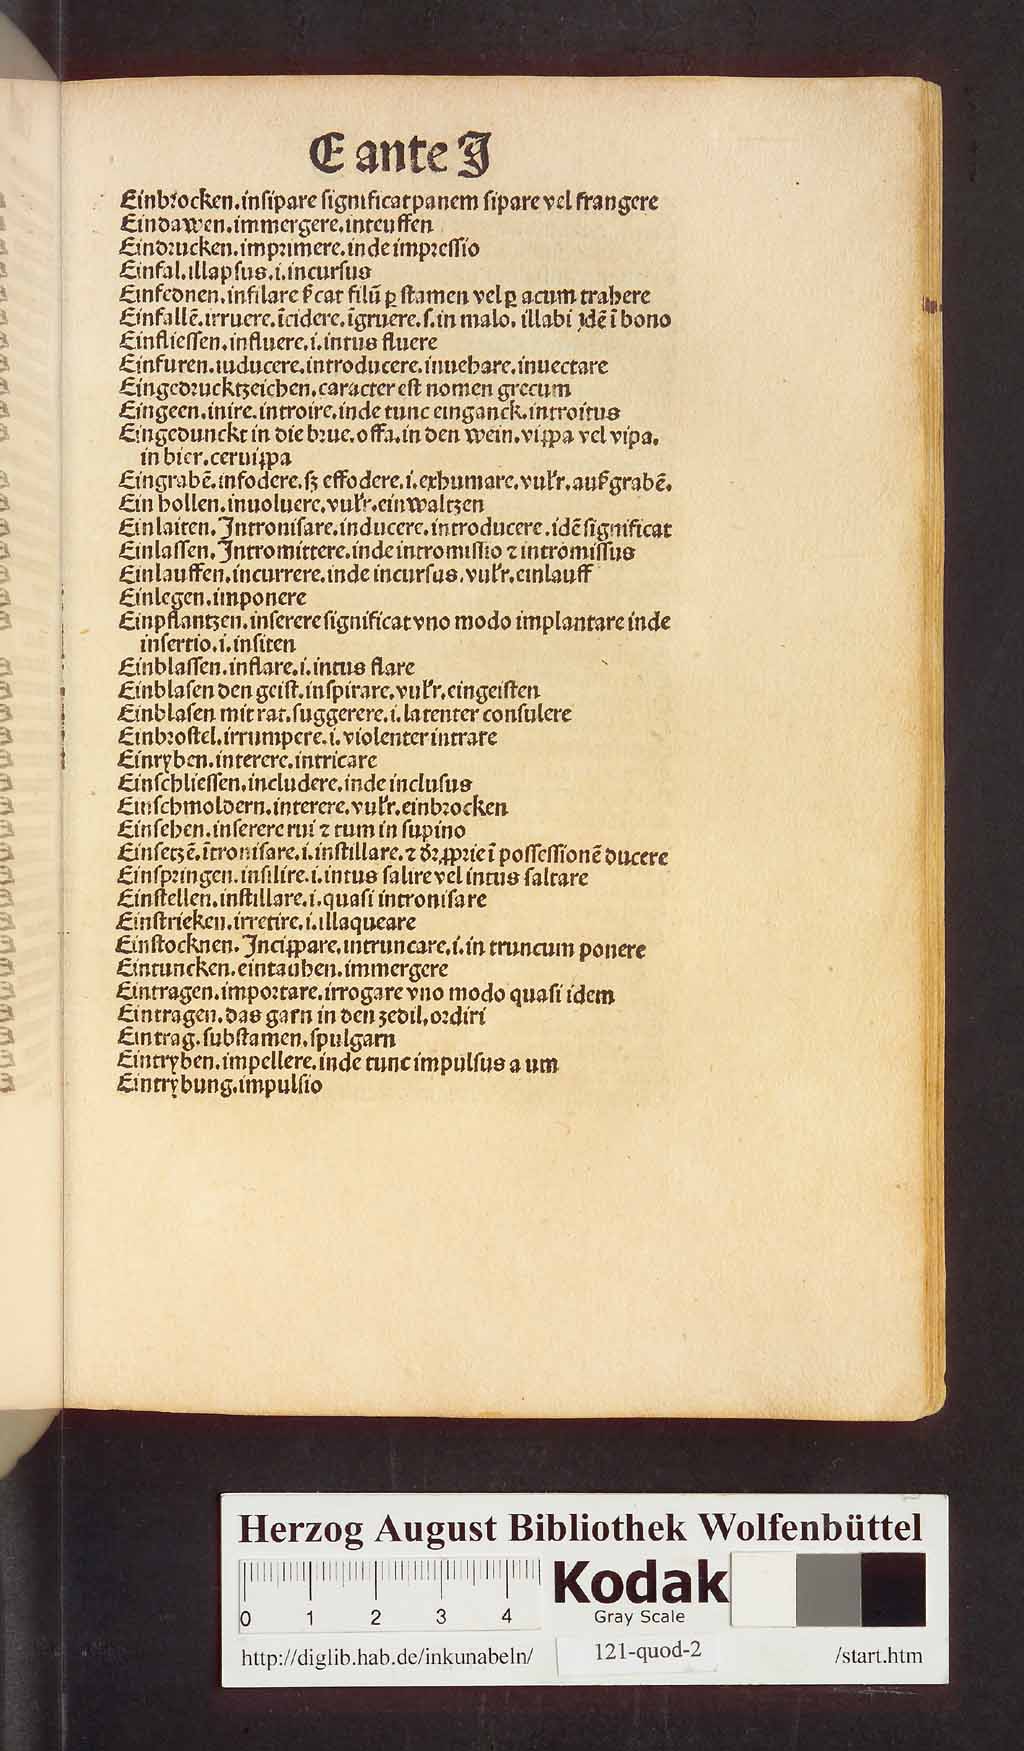 E ante I
Einbrocken.insipare significat panem sipare vel frangere
Eindawen.immergere.inteuffen
Eindrucken.imprimere.inde impressio
Einfal.illapsus.i.incursus
Einfednen.infilare scat filū ꝑ stamen vel ꝑ acum trahere
Einfallē.irruere.īcidere.īgruere.s.in malo. illabi idē ī bono
Einfliessen.influere.i.intus fluere
Einfuren.inducere.introducere.inuehare.inuectare
Eingedrucktzeichen.caracter est nomen grecum
Eingeen.inire.introire.inde tunc einganck.introitus
Eingedunckt in die brue.offa.in den wein.vippa vel vipa.
in bier.ceruippa
Eingrabē.infodere.sꝫ effodere.i.exhumare.vulr.aufgrabē.
Ein hollen.inuoluere.vulr.einwaltzen
Einlaiten.Intronisare.inducere.introducere.idē significat
Einlassen.Intromittere.inde intromissio ⁊ intromissus
Einlauffen.incurrere.inde incursus.vulr.einlauff
Einlegen.imponere
Einpflantzen.inserere significat vno modo implantare inde
insertio.i.insiten
Einblassen.inflare.i.intus flare
Einblasen den geist.inspirare.vulr.eingeisten
Einblasen mit rat.suggerere.i.latenter consulere
Einbrostel.irrumpere.i.violenter intrare
Einryben.interere.intricare
Einschliessen.includere.inde inclusus
Einschmoldern.interere.vulr.einbrocken
Einsehen.inserere rui ⁊ tum in supino
Einsetzē.ītronisare.i.instillare.⁊ dr̄ ꝓprie ī possessionē ducere
Einspringen.insilire.i.intus salire vel intus saltare
Einstellen.instillare.i.quasi intronisare
Einstricken.irretire.i.illaqueare
Einstocknen.Incippare.intruncare.i.in truncum ponere
Eintuncken.eintauhen.immergere
Eintragen.importare.irrogare vno modo quasi idem
Eintragen.das garn in den zedil.ordiri
Eintrag.substamen.spulgarn
Eintryben.impellere.inde tunc impulsus a um
Eintrybung.impulsio
Herzog August Bibliothek Wolfenbüttel
0 1 2 3 4
Kodak
Gray Scale
http://diglib.hab.de/inkunabeln/ 121-quod-2 /start.htm